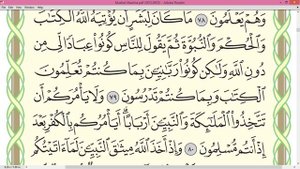 وَهُمْ يَعْلَمُونَ ٧٨ مَا كَانَ لِبَشَرٍ أَن يُؤْتِيَهُ ٱللَّهُ ٱلْكِتَٰبَ
وَٱلْحُكْمَ وَٱلنُّبُوَّةَ ثُمَّ يَقُولَ لِلنَّاسِ كُونُوا۟ عِبَادًا لِّى مِن
دُونِ ٱللَّهِ وَلَٰكِن كُونُوا۟ رَبَّٰنِيِّـۧنَ بِمَا كُنتُمْ تُعَلِّمُونَ
ٱلْكِتَٰبَ وَبِمَا كُنتُمْ تَدْرُسُونَ ٧٩ وَلَا يَأْمُرَكُمْ أَن
تَتَّخِذُوا۟ ٱلْمَلَٰٓئِكَةَ وَٱلنَّبِيِّـۧنَ أَرْبَابًا أَيَأْمُرُكُم بِٱلْكُفْرِ بَعْدَ
إِذْ أَنتُم مُّسْلِمُونَ ٨٠ وَإِذْ أَخَذَ ٱللَّهُ مِيثَٰقَ ٱلنَّبِيِّـۧنَ لَمَآ ءَاتَيْتُكُم